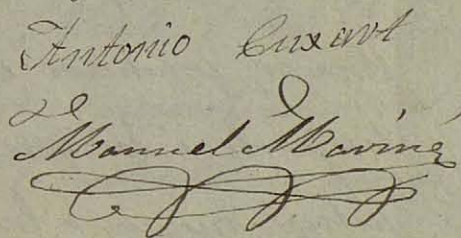 Antonio Cuxart
Manuel Mariné